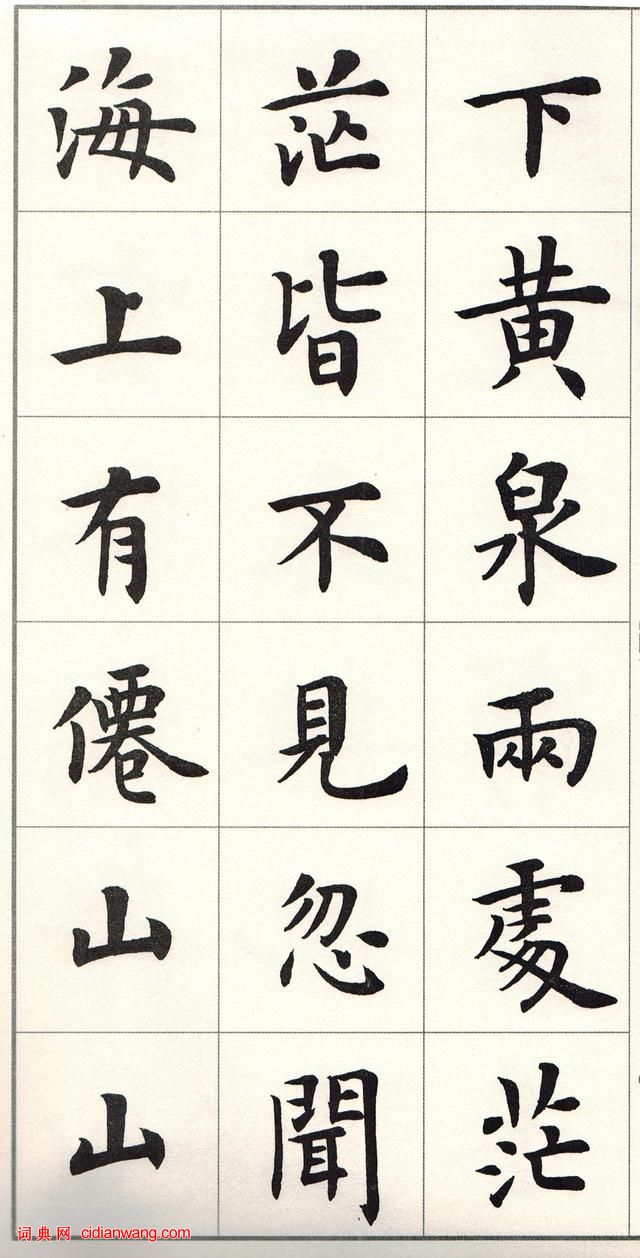 下黃泉兩處茫
茫皆不見忽聞
海上有僊山山
词典网 cidianwang.com